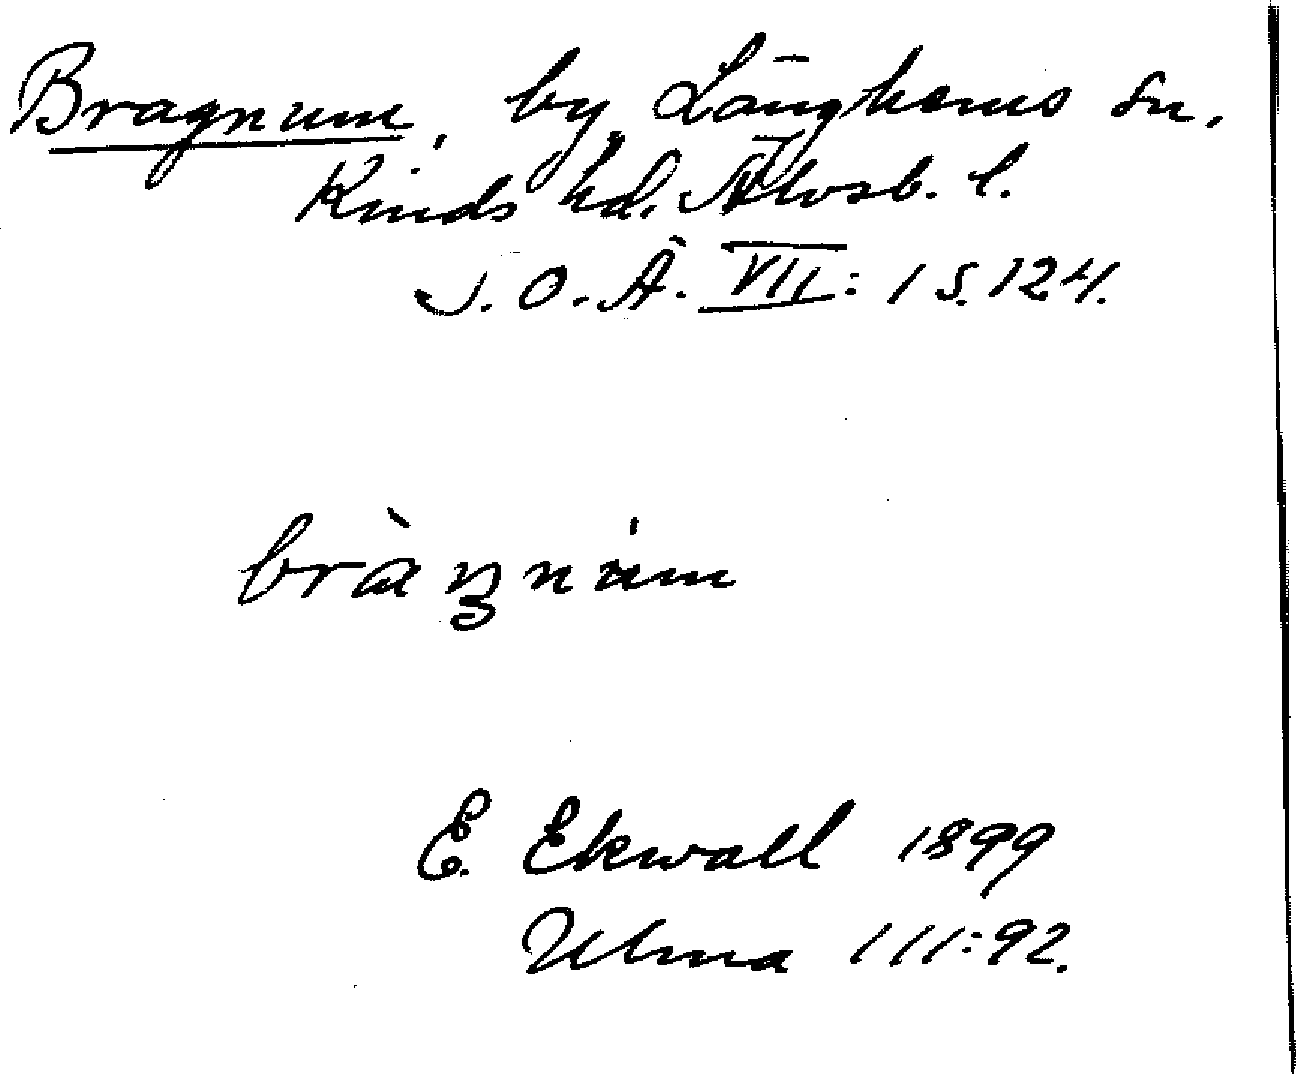 Bragnum, by, Länghems sn,
Kinds hd. Älvsb. l.
S.O.Ä. VII: 1 s. 124.
bràŋnúm
E. Ekwall 1899
Ulma 111:92.